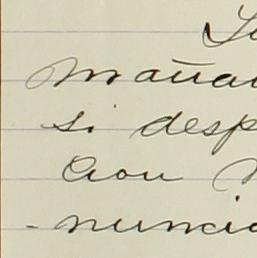 mañan
si desp
cion
- nuncia